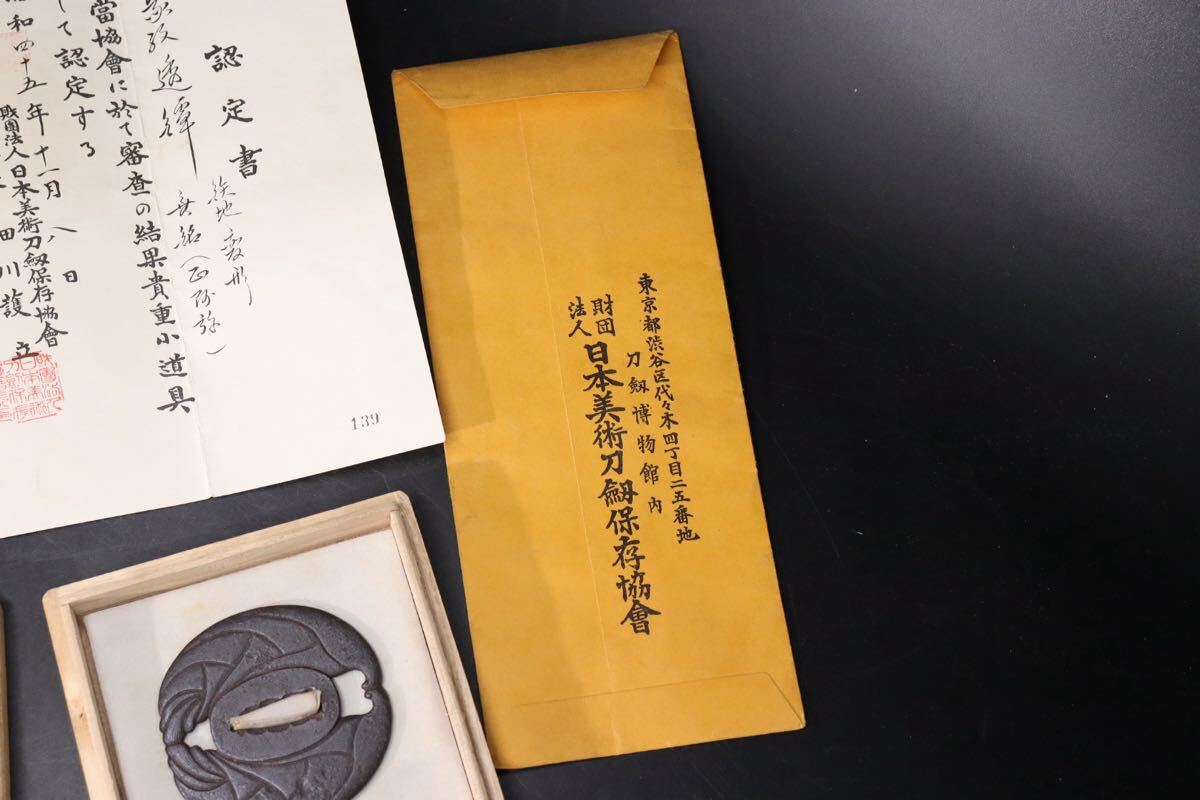 認定書
透鐔
鉄地 変形
無銘（正阿弥）
當協會に於て審査の結果貴重小道具
して認定する
和四十五年十一月八日
財團法人日本美術刀劔保存協會
田川護立
139
東京都渋谷区代々木四丁目二五番地
刀劔博物館内
財団法人
日本美術刀劔保存協會